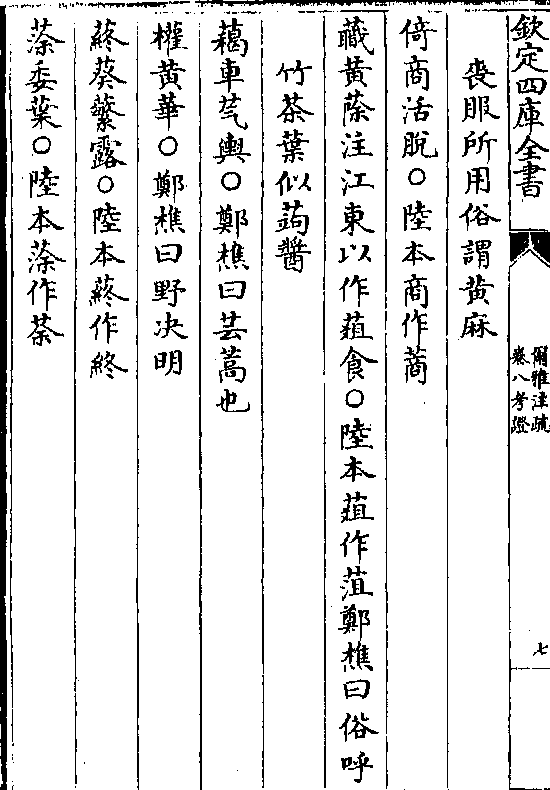 欽定四庫全書
爾雅注疏
卷八考證
七
喪服所用俗謂黃麻
倚商活脫○陸本商作蔏
蘵黃蒢注江東以作葅食○陸本葅作菹鄭樵曰俗呼
竹茶葉似蒟醬
藒車芞輿○鄭樵曰芸蒿也
權黃華○鄭樵曰野決明
蔠葵蘩露○陸本蔠作終
蒤委葉○陸本蒤作荼